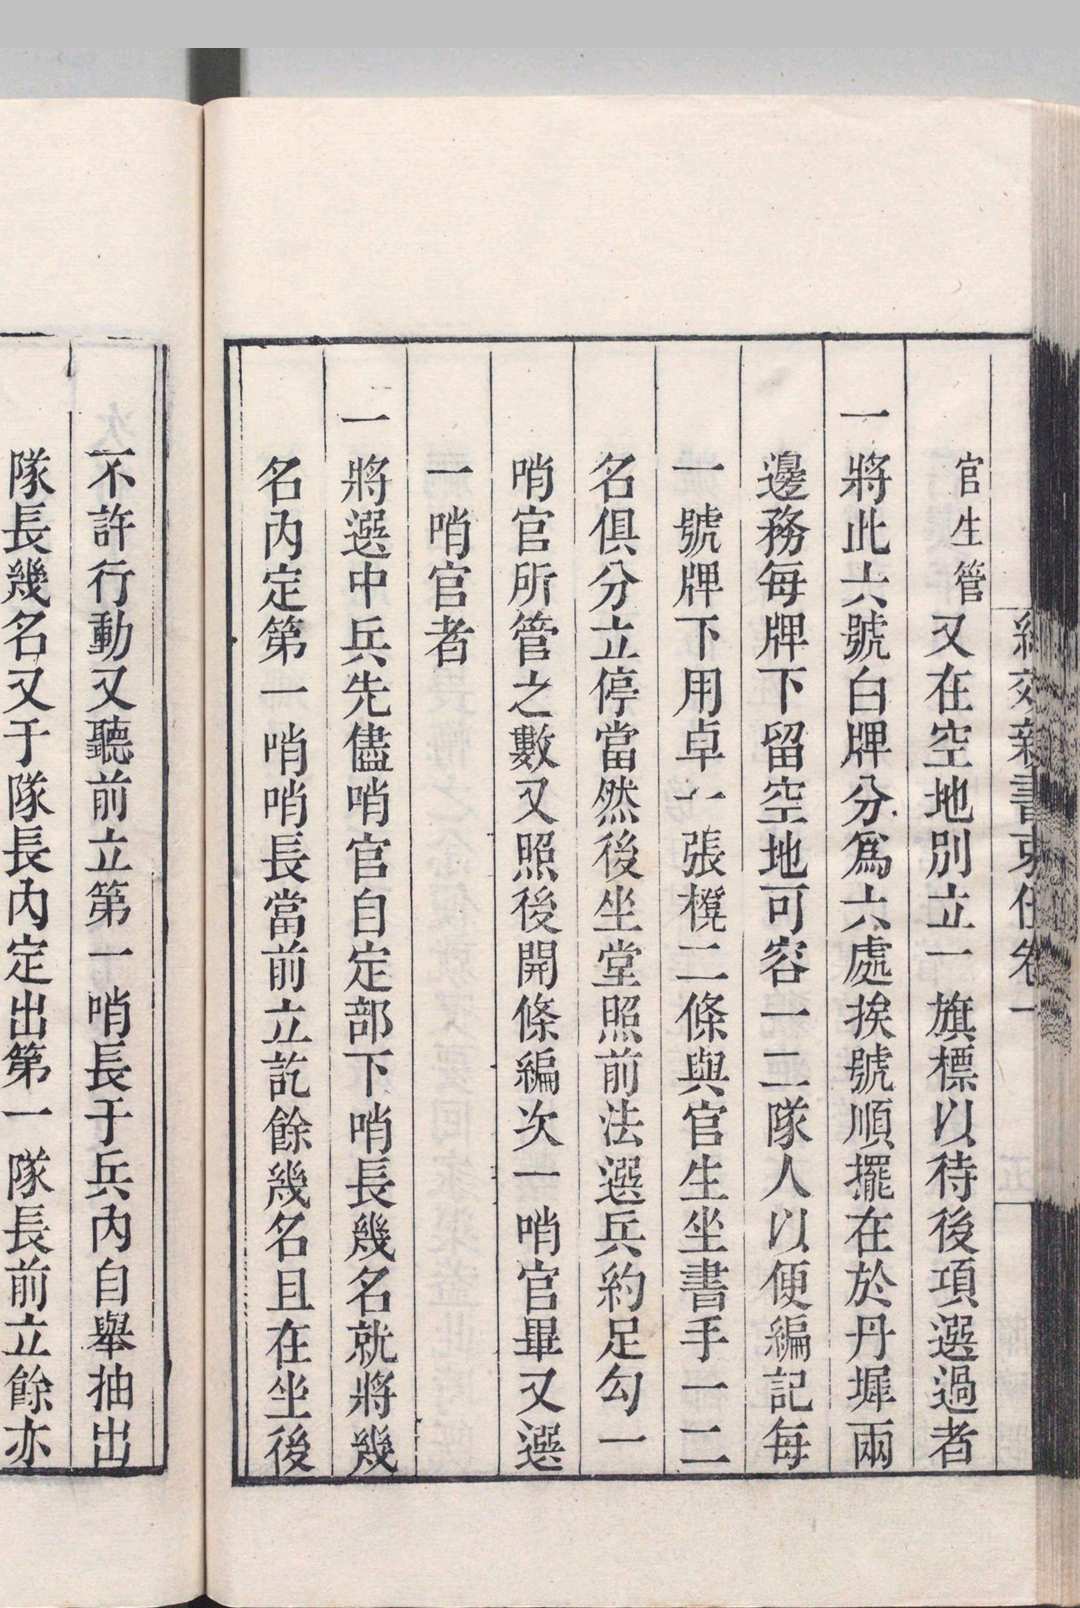 紀效新書束伍卷一
官生管又在空地別立一旗標以待後項選過者
一將此六號白牌分爲六處挨號順擺在於丹墀兩
邊務每牌下留空地可容一二隊人以便編記每
一號牌下用卓一張櫈二條與官生坐書手一二
名俱分立停當然後坐堂照前法選兵約足勾一
哨官所管之數又照後開條編次一哨官畢又選
一哨官者
一將選中兵先儘哨官自定部下哨長幾名就將幾
名內定第一哨哨長當前立訖餘幾名且在坐後
不許行動又聽前立第一哨長于兵內自舉抽出
隊長幾名又于隊長內定出第一隊長前立餘亦